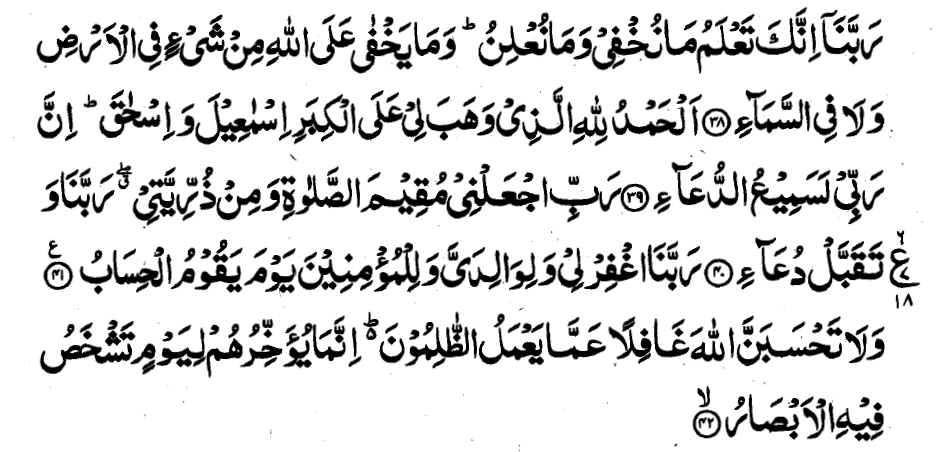 رَبَّنَآ اِنَّكَ تَعْلَمُ مَا نُخْفِيْ وَمَا نُعْلِنُ ؕ وَمَا يَخْفٰى عَلَى اللّٰهِ مِنْ شَيْءٍ فِي الْاَرْضِ
وَلَا فِي السَّمَآءِ ۝۳۸ اَلْحَمْدُ لِلّٰهِ الَّذِيْ وَهَبَ لِيْ عَلَى الْكِبَرِ اِسْمٰعِيْلَ وَاِسْحٰقَ ؕ اِنَّ
رَبِّيْ لَسَمِيْعُ الدُّعَآءِ ۝۳۹ رَبِّ اجْعَلْنِيْ مُقِيْمَ الصَّلٰوةِ وَمِنْ ذُرِّيَّتِيْ ۖۗ رَبَّنَا وَ
تَقَبَّلْ دُعَآءِ ۝۴۰ رَبَّنَا اغْفِرْ لِيْ وَلِوَالِدَيَّ وَلِلْمُؤْمِنِيْنَ يَوْمَ يَقُوْمُ الْحِسَابُ ۝۴۱ ع
۶ ع ۷ ۱۸
وَلَا تَحْسَبَنَّ اللّٰهَ غَافِلًا عَمَّا يَعْمَلُ الظّٰلِمُوْنَ ؕ۬ اِنَّمَا يُؤَخِّرُهُمْ لِيَوْمٍ تَشْخَصُ
فِيْهِ الْاَبْصَارُ ۝۴۲ ۙ